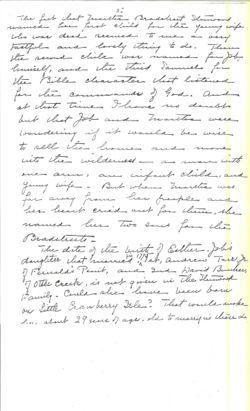 The fact that Martha Bradstreet Stanwood
named her first child for the young wife
who was dead seemed to me a very
tactful and lovely thing to do. Then
the second child was named for Job
himself, and the third Samuel for
the Bible character that listened
for the commands of God. And
at that time I have no doubt
but that Job and Martha were
wondering if it would be wise
to sell the home and move
into the wilderness - a man with
one arm, an infant child, and
young wife. But when Martha was
far away from her peoples and
her heart cried out for them, she
named her two sons for the
Bradstreets.
The date of the birth of Esther, Job's
daughter that married Andrew Tarr, Jr.
of Fernald's Point, and 2nd David Bunker
of Otter Creek, is not given in the Stanwood
Family. Could she have been born
on Little Cranberry Isle? That would make
about 29 years of age, old to marry in those